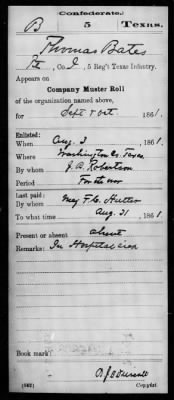 Confederate.
B 5 Texas.
Thomas Bates
Pt, Co. I, 5 Reg't Texas Infantry.
Appears on
Company Muster Roll
of the organization named above,
for Sept & Oct, 1861.
Enlisted:
When Aug. 3, 1861.
Where Washington Co. Texas
By whom J. B. Robertson
Period For the war
Last paid:
By whom Maj. F. C. Hutter
To what time Aug. 31, 1861.
Present or absent absent
Remarks: In Hospital sick
Book mark:
(642) Copyist.